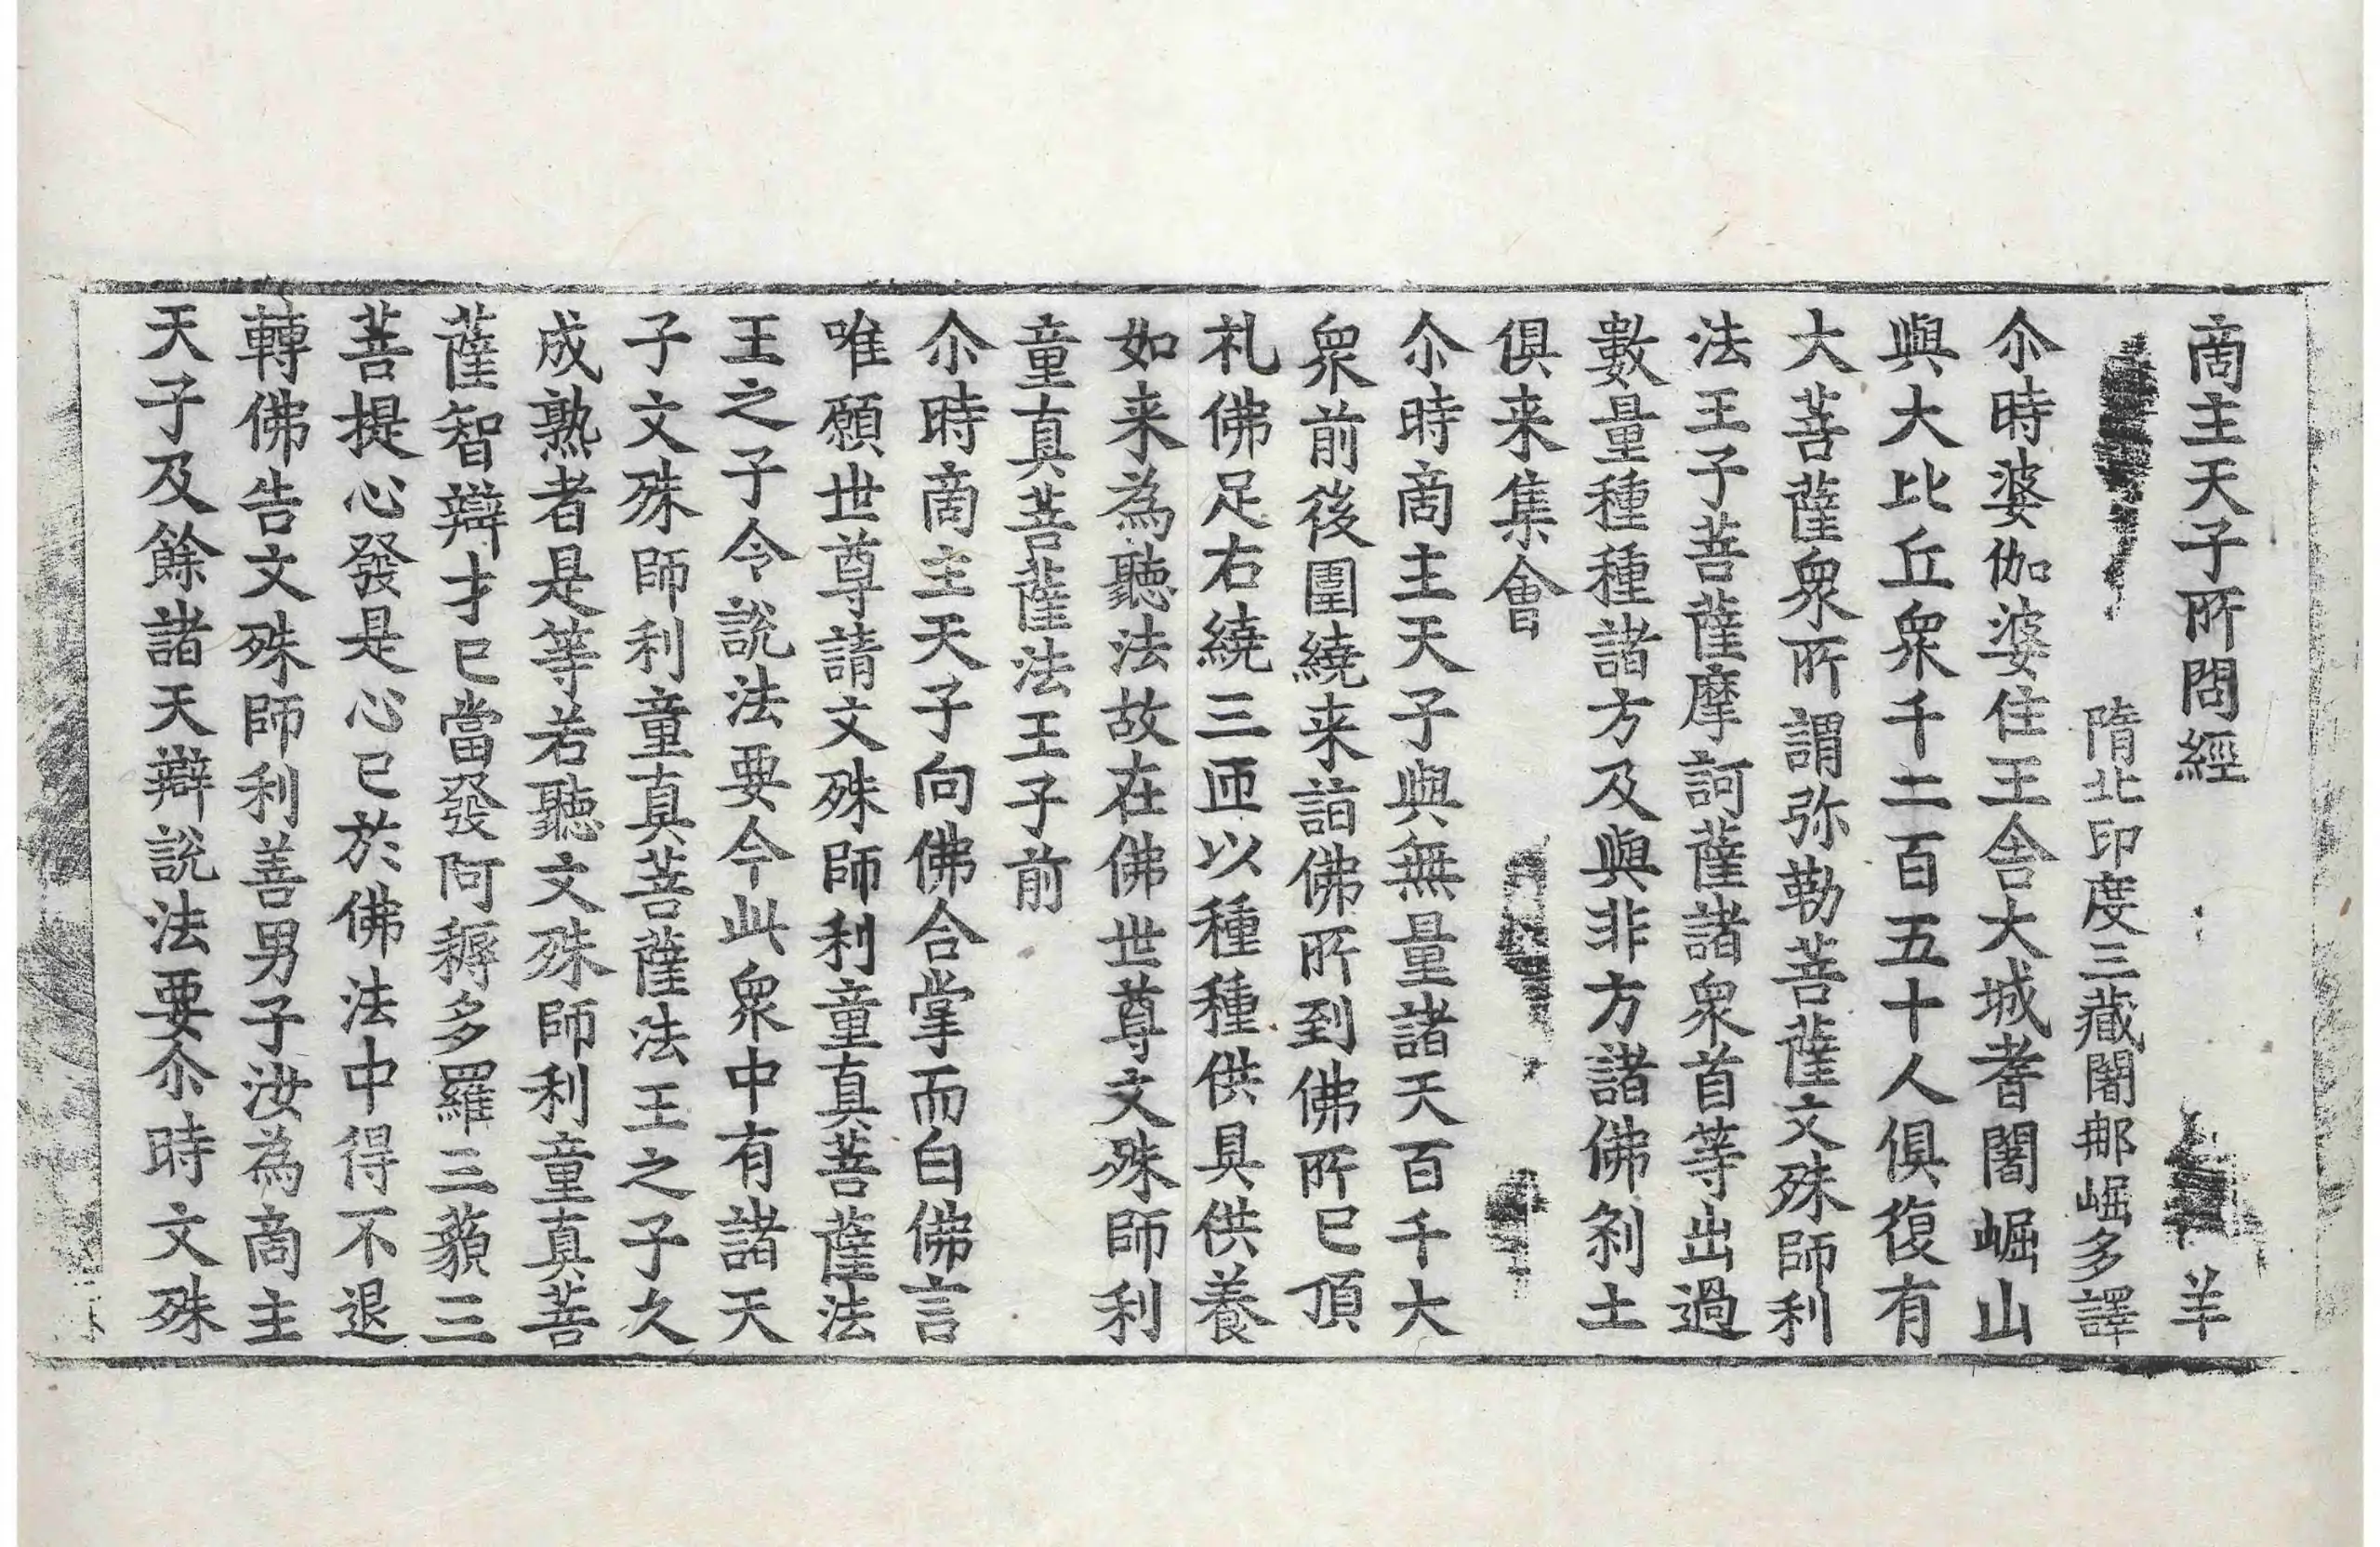 啇主天子所問經 羊
隋北印度三藏闍那崛多譯
尒時婆伽婆住王舍大城耆闍崛山
與大比丘衆千二百五十人俱復有
大菩薩衆所謂弥勒菩薩文殊師利
法王子菩薩摩訶薩諸衆首等出過
數量種種諸方及與非方諸佛刹土
俱来集會
尒時啇主天子與無量諸天百千大
衆前後圍繞来詣佛所到佛所已頂
礼佛足右繞三匝以種種供具供養
如来為聽法故在佛世尊文殊師利
童真菩薩法王子前
尒時啇主天子向佛合掌而白佛言
唯願世尊請文殊師利童真菩薩法
王之子令說法要今此衆中有諸天
子文殊師利童真菩薩法王之子久
成熟者是等若聽文殊師利童真菩
薩智辯才已當發阿耨多羅三藐三
菩提心發是心已於佛法中得不退
轉佛告文殊師利善男子汝為啇主
天子及餘諸天辯說法要尒時文殊